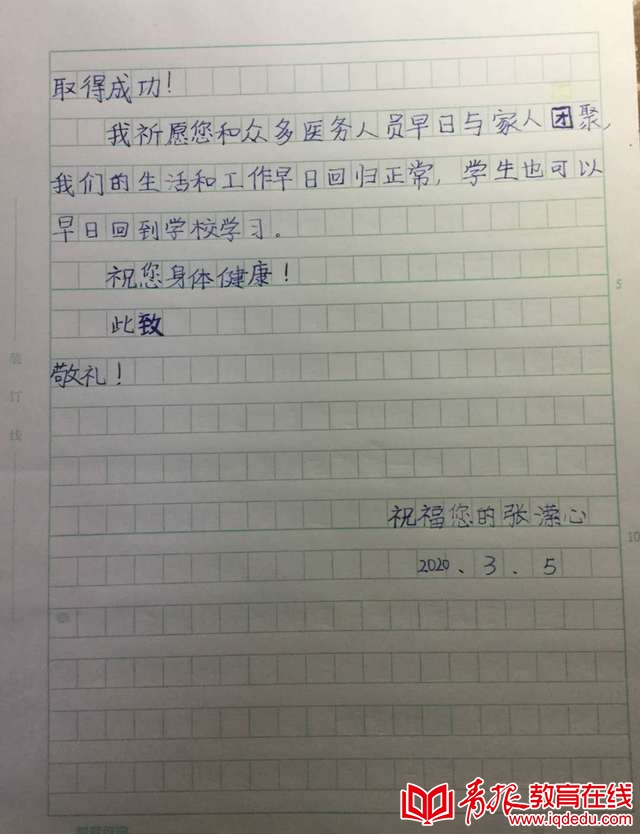 取得成功!
我祈愿您和众多医务人员早日与家人团聚,
我们的生活和工作早日回归正常,学生也可以
早日回到学校学习。
5
祝您身体健康!
此致
敬礼!
装订线
祝福您的张潆心
10
2020.3.5
青报教育在线
www.iqdedu.com